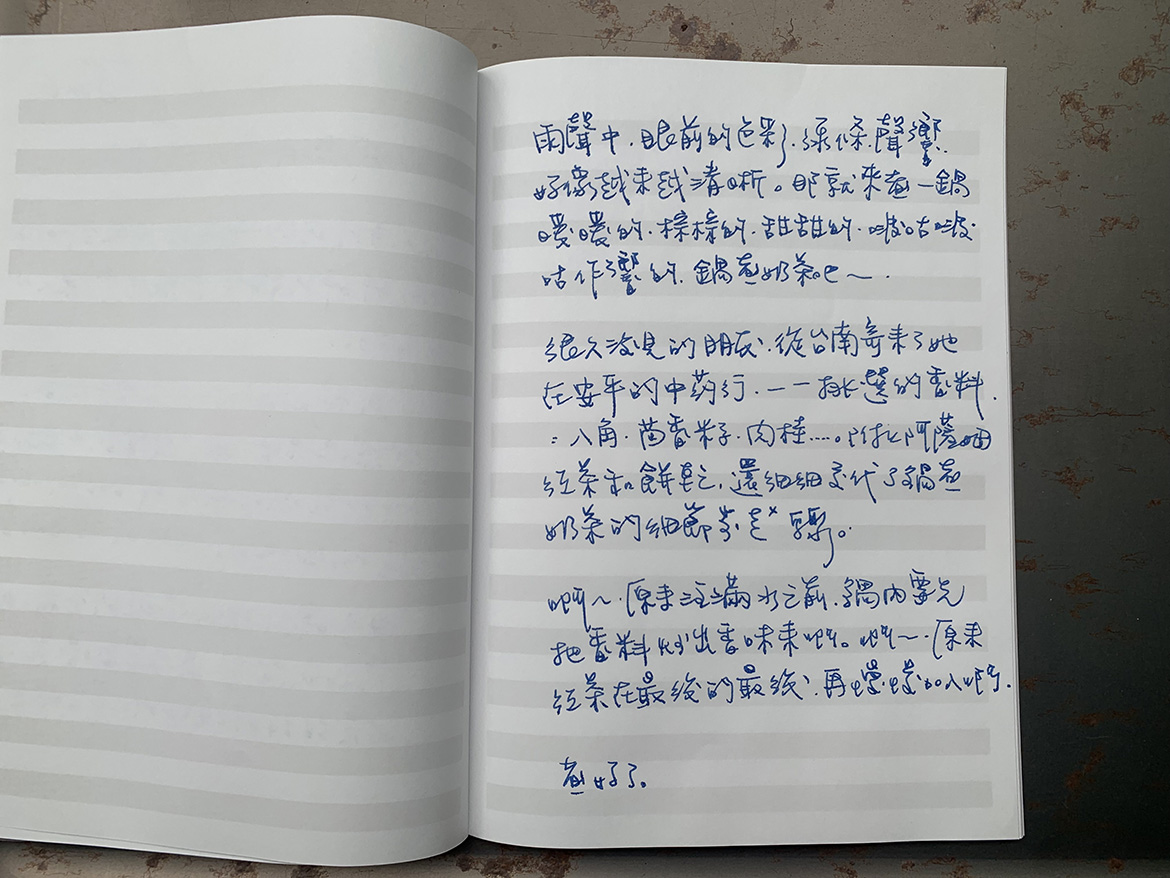 雨聲中．眼前的色彩．線條．聲響．
好像越來越清晰。那就來煮一鍋
暖暖的．棕棕的．甜甜的．啵咕啵
咕作響的．鍋煮奶茶吧～．
很久沒見的朋友．從台南寄來了她
在安平的中藥行．一一挑選的香料．
：八角．茴香籽子．肉桂……。附上阿薩姆
紅茶和餅乾．還細細交代了鍋煮
奶茶的細節步走×驟。
啊～．原來注滿水之前．鍋內要先
把香料炒出香味來啊。啊～．原來
紅茶在最後的最後．再慢慢加入啊．
煮好了。